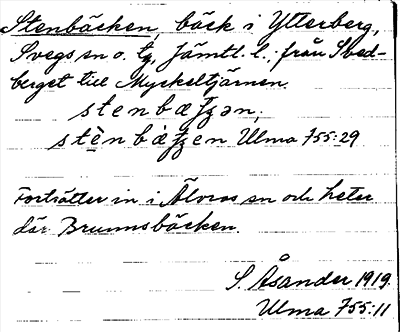 Stenbäcken, bäck i Ytterberg,
Svegs sn o. tg, Jämtl. l.; från Sbed-
berget till Myckeltjärnen.
stenbæʈʂən;
stènbæ̀ʈʂen Ulma 755:29
Fortsätter in i Älvros sn och heter
där Brunnsbäcken.
S. Åsander 1919.
Ulma 755:11